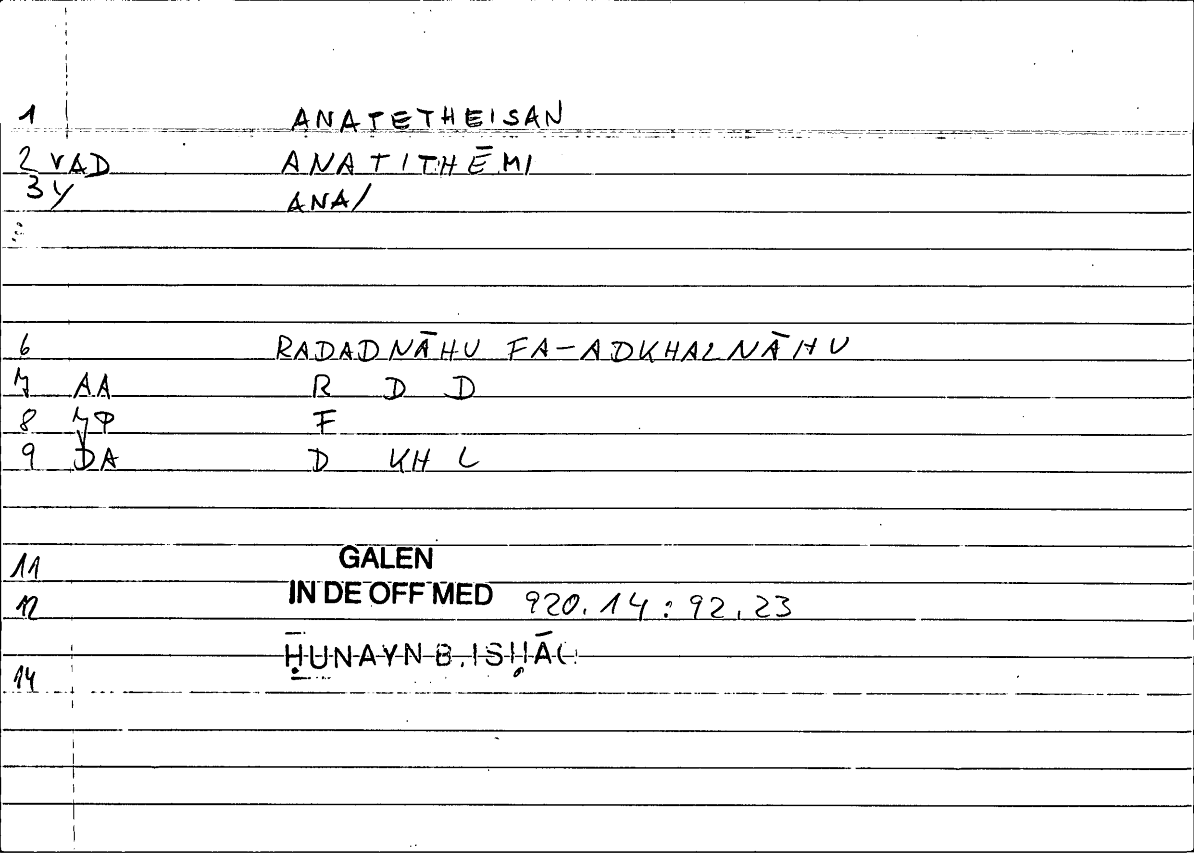 1 ANATETHEISAN
2 VAD ANATITHĒMI
3 Y ANA/
6 RADADNĀHU FA-ADKHALNĀHU
7 AA R D D
8 F
9 DA D KH L
11 GALEN
IN DE OFF MED 920.14:92.23
12
ḤUNAYN B. ISḤĀQ
14